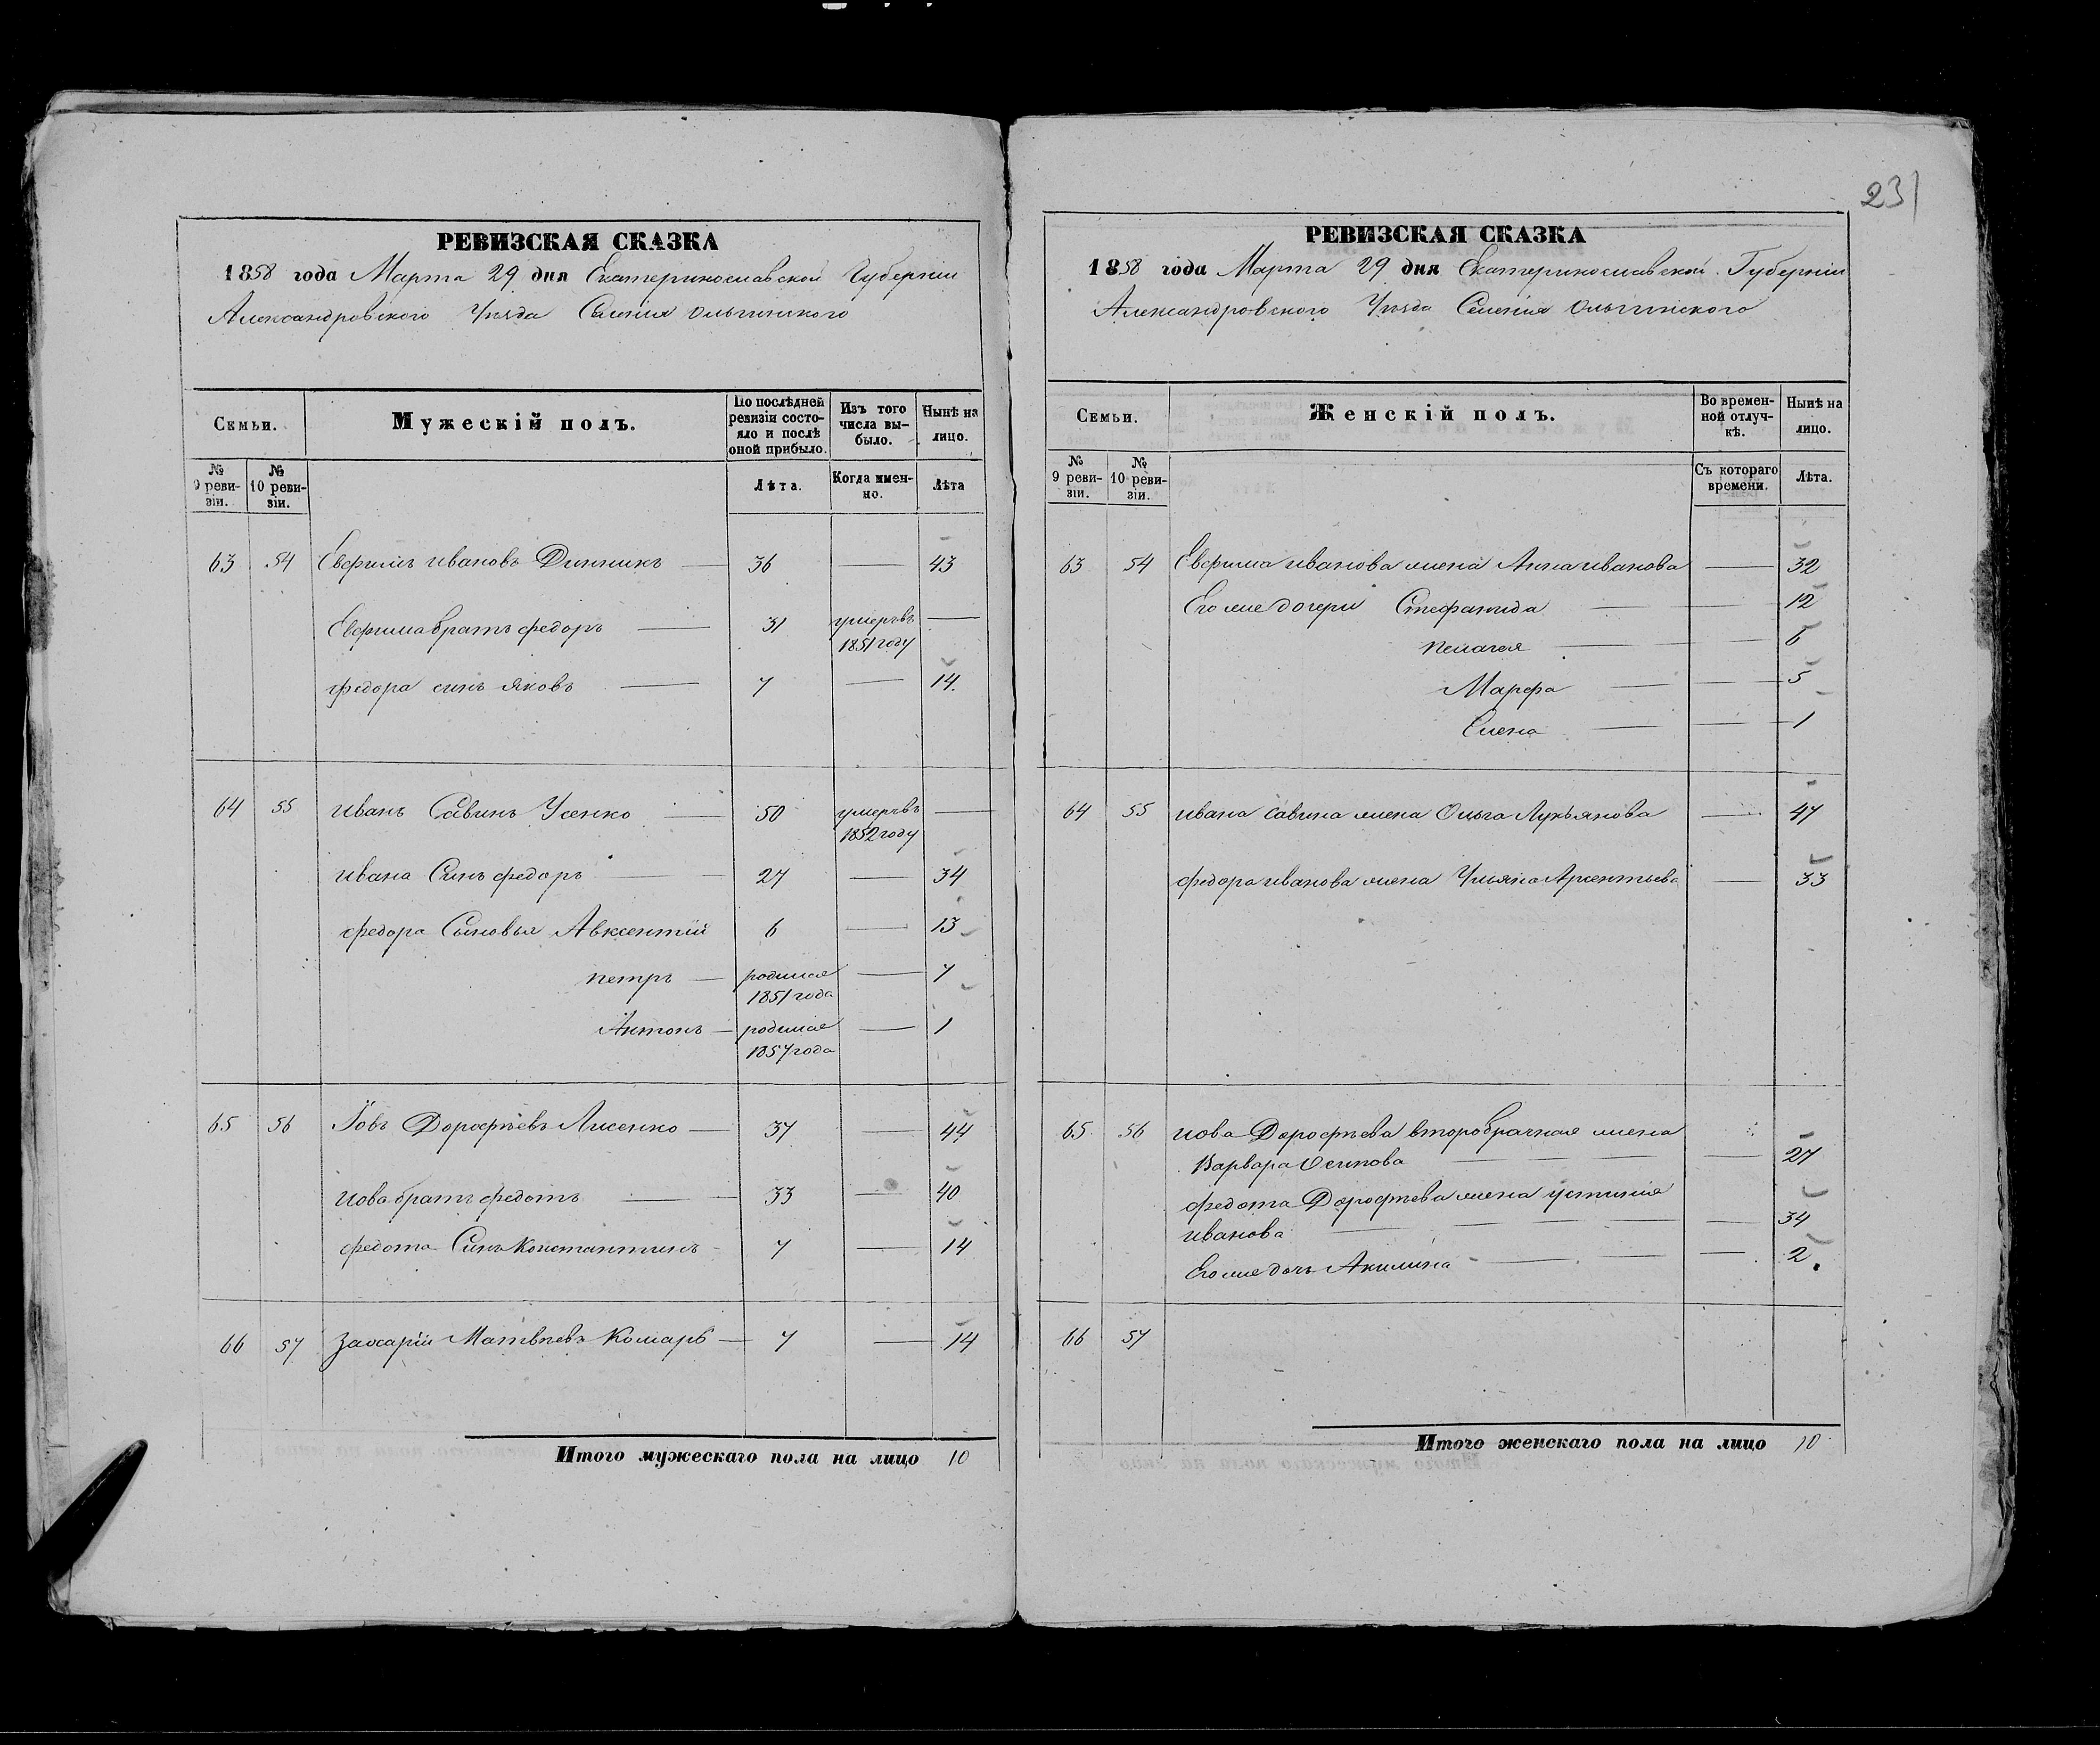 231
РЕВИЗСКАЯ СКАЗКА
1858 года Марта 29 дня Екатеринославской Губерніи
Александровского Уѣзда Селенія Ольгинского
Семьи.
Мужескій полъ.
По послѣдней ревизіи состояло и послѣ оной прибыло.
Изъ того числа выбыло.
Нынѣ на лицо.
№ 9 ревизіи.
№ 10 ревизіи.
Лѣта.
Когда именно.
Лѣта
63 54 Евфимъ ивановъ Динникъ — 36 — 43
Евфима братъ федоръ — 31 умеръ въ 1851 году —
федора синъ яковъ — 7 — 14.
64 55 иванъ Савинъ Усенко — 50 умеръ въ 1852 году —
ивана Синъ федоръ — 27 — 34
федора Сыновья Авксентій 6 — 13
петръ — родился 1851 года — 7
Антонъ — родился 1857 года — 1
65 56 Іовъ Дорофѣевъ Лисенко — 37 — 44
иова братъ федотъ — 33 — 40
федота Синъ Константинъ - 7 — 14
66 57 Захарій Матвѣевъ Комаръ — 7 — 14
Итого мужескаго пола на лицо 10
РЕВИЗСКАЯ СКАЗКА
1858 года Марта 29 дня Екатеринославской Губерніи
Александровского Уѣзда Селенія Ольгинского
Семьи.
Женскій полъ.
Во временной отлучкѣ.
Нынѣ на лицо.
№ 9 ревизіи.
№ 10 ревизіи.
Съ котораго времени.
Лѣта.
63 54 Евфима иванова жена Анна иванова — 32
Его же дочери Стефанида — 12
пелагея — 6
Марфа — 5
Елена — 1
64 55 ивана Савина жена Ольга Лукьянова — 47
федора иванова жена Ульяна Арсентьева — 33
65 56 иова Дорофѣева второбрачная жена
Варвара Осипова — 27
федота Дорофѣева жена устинія
иванова — 34
Его же дочь Акилина — 2
66 57
Итого женскаго пола на лицо 10